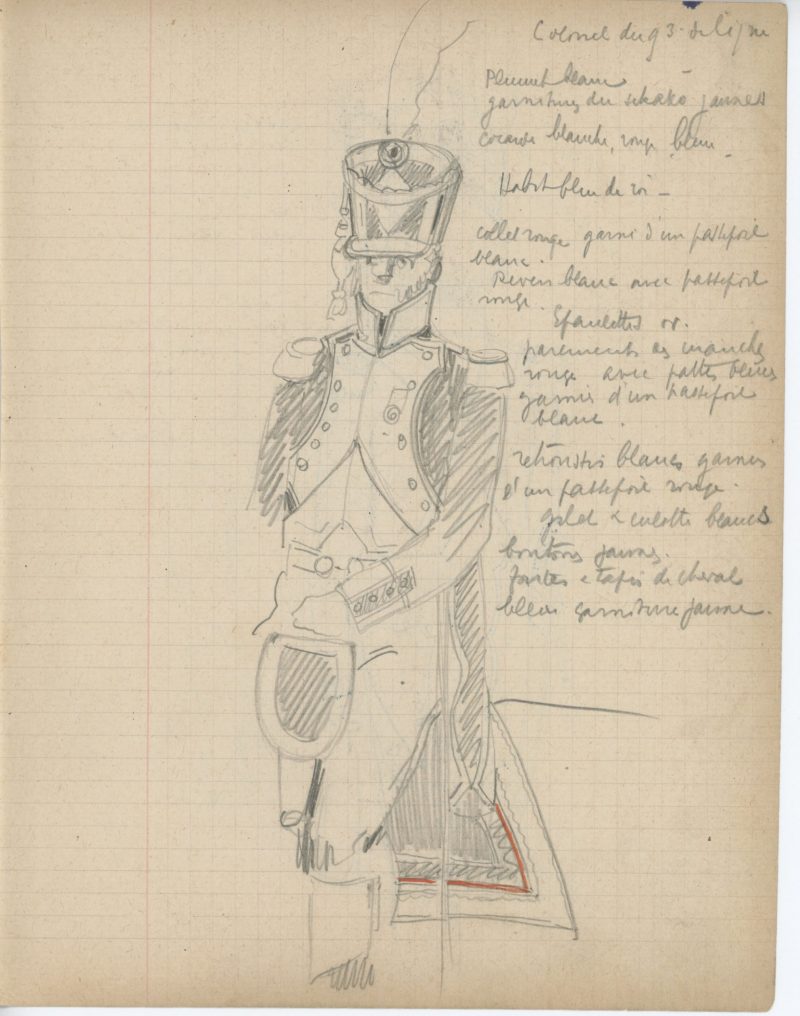 Colonel du 93 de ligne
Plumet blanc
garnitures du schako jaunes
cocarde blanche, rouge, bleu
Habit bleu de roi -
collet rouge garni d'un passepoil
blanc.
Revers blanc avec passepoil
rouge.
Epaulettes or.
parements des manches
rouge avec pattes bleues
garnis d'un passepoil
blanc.
retroussis blancs garnis
d'un passepoil rouge.
gilet & culotte blancs
boutons jaunes.
fontes e tapis de cheval
bleu garniture jaune.